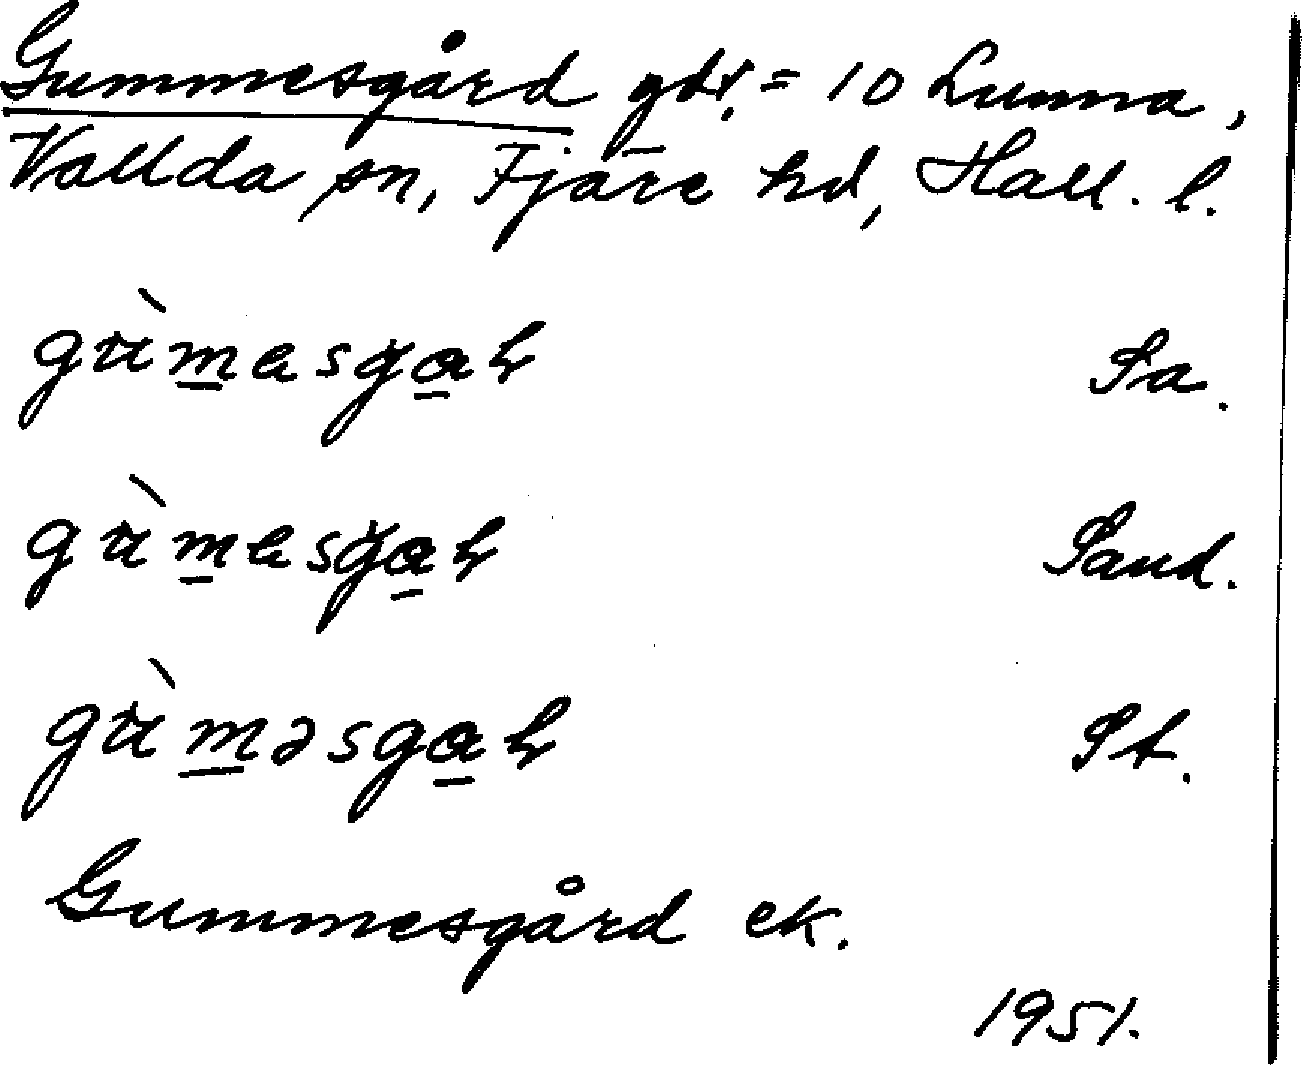 Gummesgård gdr. = 10 Lunna,
Vallda sn, Fjäre hd, Hall. l.
gùm̲asga̲r Sa.
gùm̲asga̲r Sand.
gùm̲əsga̲r St.
Gummesgård ek.
1951.